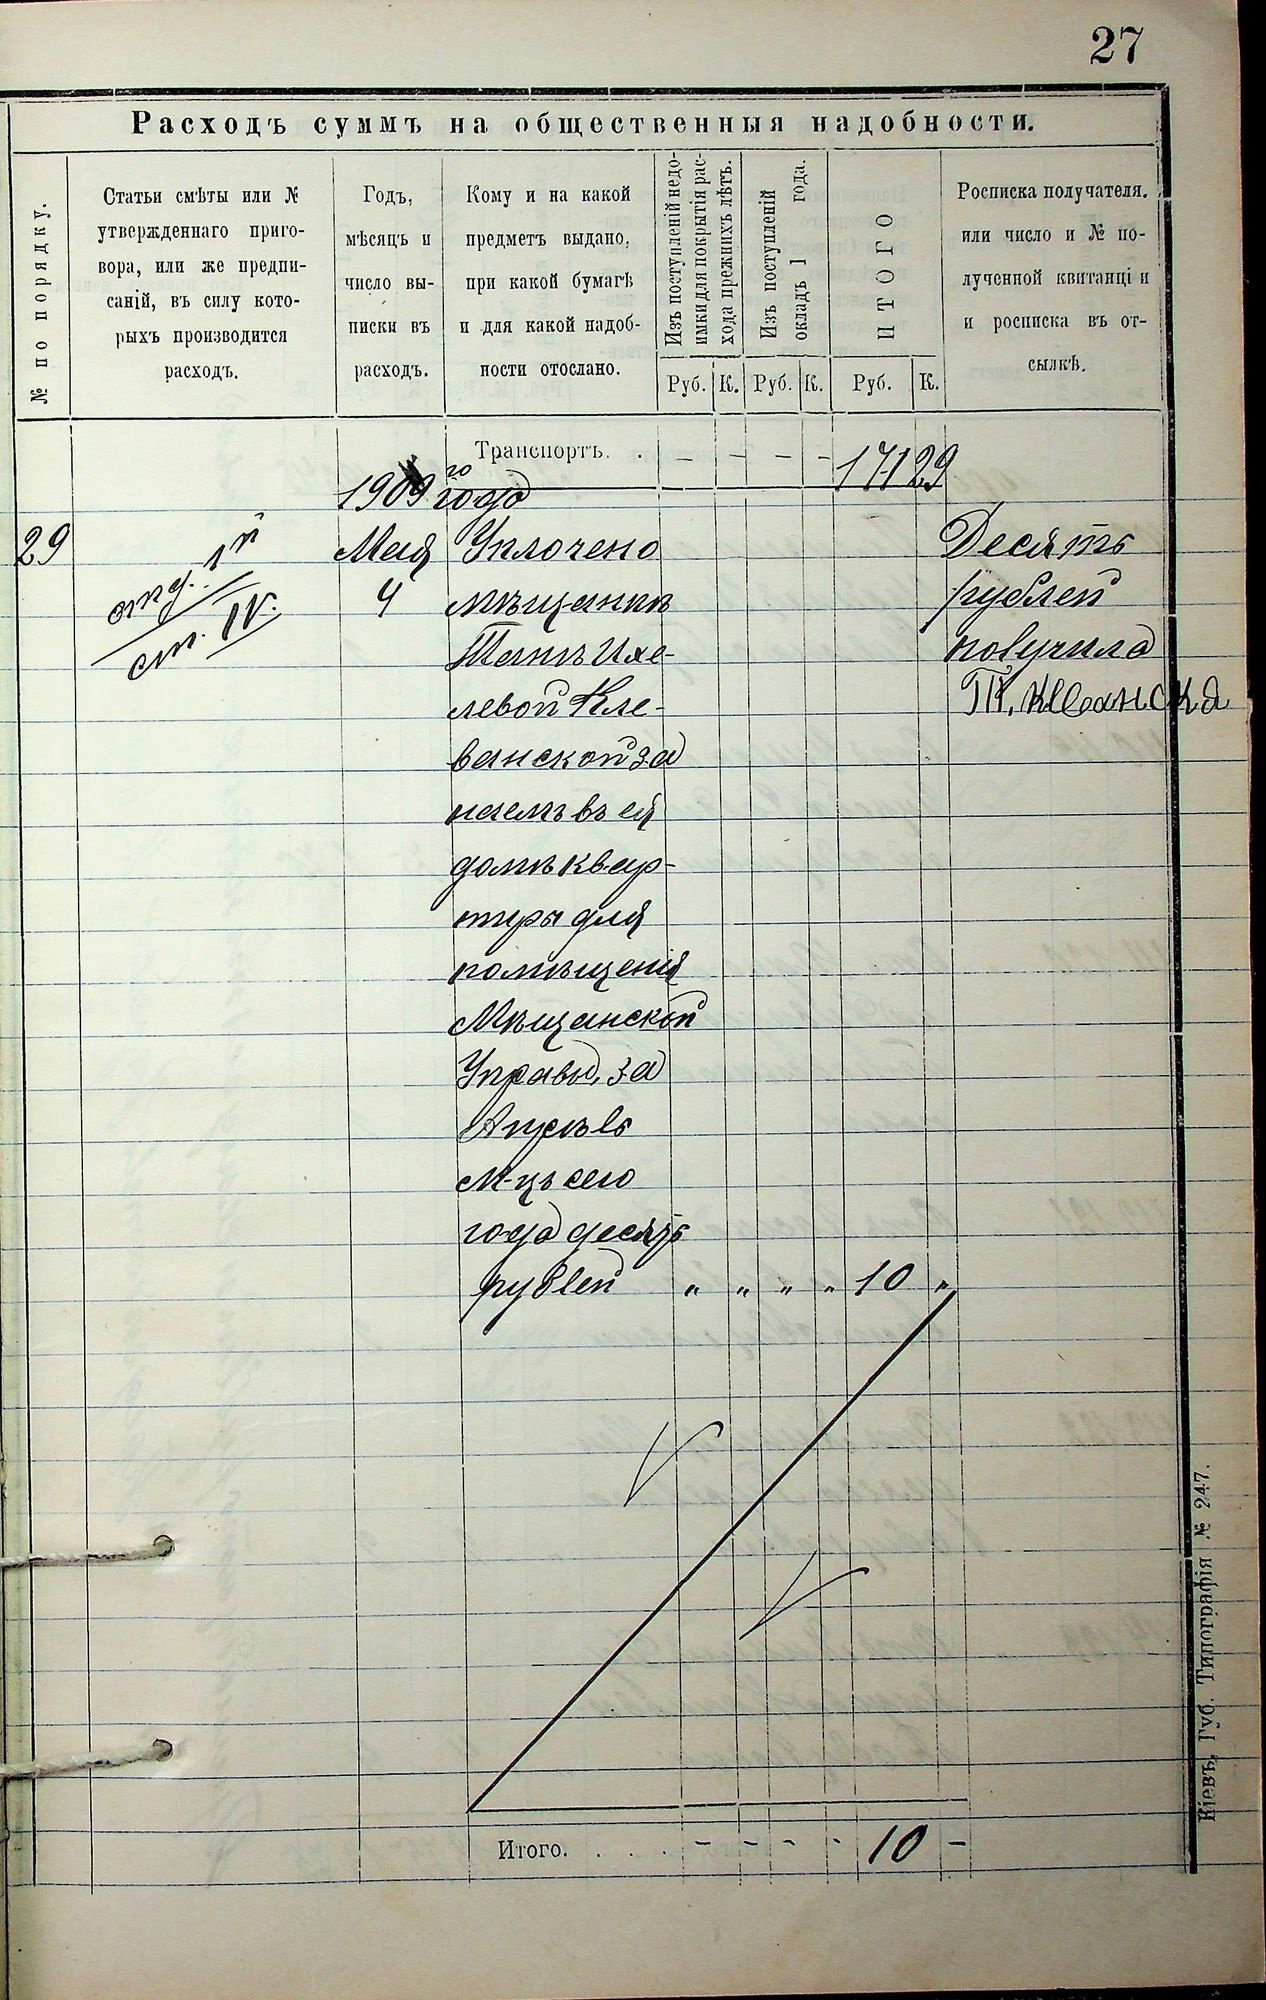 27
Расходъ суммъ на общественныя надобности.
№ по порядку.
Статьи смѣты или №
утвержденнаго приго-
вора, или же предпи-
саній, въ силу кото-
рыхъ производится
расходъ.
Годъ,
мѣсяцъ и
число вы-
писки въ
расходъ.
Кому и на какой
предметъ выдано,
при какой бумагѣ
и для какой надоб-
ности отослано.
Изъ поступленій недо-
имки для покрытія рас-
хода прежнихъ лѣтъ.
Изъ поступленій
окладъ 1 года.
ИТОГО
Росписка получателя.
или число и № по-
лученной квитанціи
и росписка въ от-
сылкѣ.
Руб. К. Руб. К. Руб. К.
Транспортъ. . - - - - 171 29
1909 го года
29 отд. 1й Мая Уплочено Десять
ст. IV. 4 мѣщанкѣ рублей
Хае-
левой Кле- Т.
ванской за
наемъ въ ея
домѣ квар-
тиры для
помѣщенія
Мѣщанской
Управы, за
Апрѣль
м-цъ сего
года десять
рублей " " " " 10 "
Итого. . . . - - - - 10 -
Кіевъ, Губ. Типографія № 247.